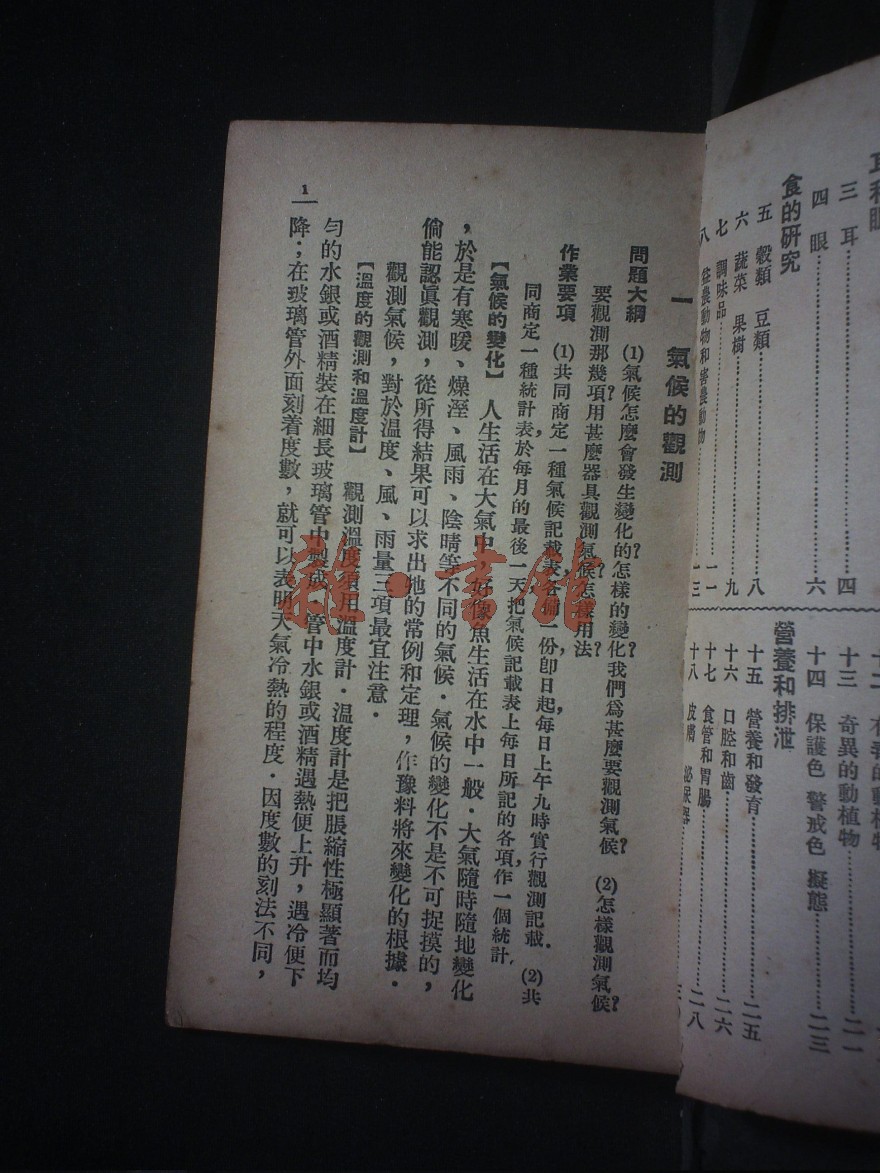 耳和眼
三 耳……四
四 眼……六
食的研究
五 穀類 豆類……八
六 蔬菜 果樹……九
七 調味品……一一
八 益農動物和害農動物……一三
十三 奇異的動植物……二一
十四 保護色 警戒色 擬態……二三
營養和排泄
十五 營養和發育……二五
十六 口腔和齒……二六
十七 食管和胃腸……二八
十八 皮膚 泌尿器
一 氣候的觀測
問題大綱 (1)氣候怎麼會發生變化的?怎樣的變化?我們爲甚麼要觀測氣候? (2)怎樣觀測氣候?
要觀測那幾項?用甚麼器具觀測氣候?怎樣用法?
作業要項 (1)共同商定一種氣候記載表,各備一份,卽日起,每日上午九時實行觀測記載. (2)共
同商定一種統計表,於每月的最後一天,把氣候記載表上每日所記的各項,作一個統計.
【氣候的變化】 人生活在大氣中,好像魚生活在水中一般.大氣隨時隨地變化
,於是有寒暖、燥溼、風雨、陰晴等不同的氣候.氣候的變化不是不可捉摸的,
倘能認眞觀測,從所得結果可以求出牠的常例和定理,作豫料將來變化的根據.
觀測氣候,對於溫度、風、雨量三項最宜注意.
【溫度的觀測和溫度計】 觀測溫度須用溫度計.溫度計是把脹縮性極顯著而均
勻的水銀或酒精裝在細長玻璃管中製成.管中水銀或酒精遇熱便上升,遇冷便下
降;在玻璃管外面刻着度數,就可以表明天氣冷熱的程度.因度數的刻法不同,
1
雜·書館